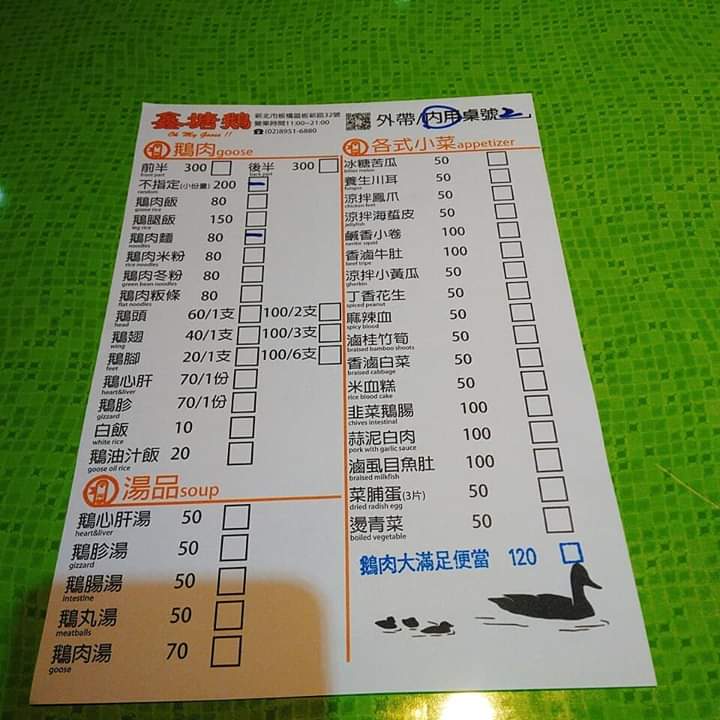 鑫塘鵝
Oh My Goose !!
新北市板橋區板新路32號
營業時間11:00~21:00
☎(02)8951-6880
外帶/內用桌號 2
鵝肉goose
前半 300 後半 300
front part back part
不指定(小份量) 200
random
鵝肉飯 80
goose rice
鵝腿飯 150
leg rice
鵝肉麵 80
noodles
鵝肉米粉 80
rice noodles
鵝肉冬粉 80
green bean noodles
鵝肉粄條 80
flat noodles
鵝頭 60/1支 100/2支
head
鵝翅 40/1支 100/3支
wing
鵝腳 20/1支 100/6支
feet
鵝心肝 70/1份
heart&liver
鵝胗 70/1份
gizzard
白飯 10
white rice
鵝油汁飯 20
goose oil rice
湯品soup
鵝心肝湯 50
heart&liver
鵝胗湯 50
gizzard
鵝腸湯 50
intestine
鵝丸湯 50
meatballs
鵝肉湯 70
goose
各式小菜appetizer
冰糖苦瓜 50
bitter melon
養生川耳 50
fungus
涼拌鳳爪 50
chicken feet
涼拌海蜇皮 50
jellyfish
鹹香小卷 100
香滷牛肚 100
beef tripe
涼拌小黃瓜 50
gherkin
丁香花生 50
spiced peanut
麻辣血 50
spicy blood
滷桂竹筍 50
braised bamboo shoots
香滷白菜 50
braised cabbage
米血糕 50
rice blood cake
韭菜鵝腸 100
chives intestinal
蒜泥白肉 100
pork with garlic sauce
滷虱目魚肚 100
braised milkfish
菜脯蛋(3片) 50
dried radish egg
燙青菜 50
boiled vegetable
鵝肉大滿足便當 120